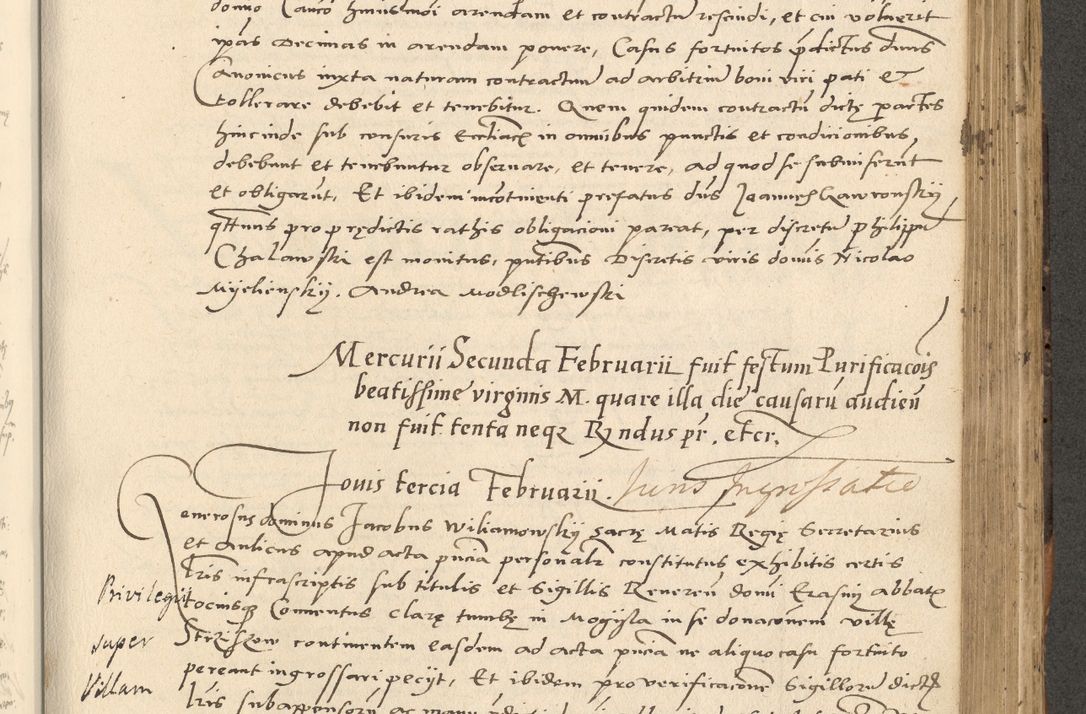 domo Canco huiusmoi arendam et contractu rescindi, et cui voluerit
ipas Decimas in arendam ponere, Casus fortuitos pdictus dnus
Canonicus iuxta naturam contractuu ad arbitriu boni viri pati et
tollerare debebit et tenebitur. Quem quidem contractu dictę partes
hincinde sub censuris Eccliace in omnibus punctis et condicionibus,
debebunt et tenebuntur obseruare, et tenere, ad quod se submiserut
et obligarut, Et ibidem incotinenti prefatus dus Joannes Gawronsky
qttnus pro prędictis rathis obligacioni pareat, per discretu philippu
Chalawski est monitus, pntibus Discretis viris domis Nicolao
Myelienskÿ. Andrea Modlischewski
Mercurii Secunda Februarii fuit festum Purificacois
beatissime virginis M. quare illa die causaru audien
non fuit tenta neqz Rndus pr. etcr.
Jouis tercia Februarii. Juris Ingrossatio
Generosus dominus Jacobus Wiliamowsky sacrę Matis Regię Secretarius
et aulicus apud acta pncia personalr constitutus exhibitis certis
lris infrascriptis sub titulis et sigillis Reueren domi Erasmi abbatis
Priuilegii tociusqz Conuentus clarę tumbę in Mogiła in se donaconem villę
super Strzszow continentem easdem ad acta pncia ne aliquo casu fortuito
Villam pereant ingrossari pecyt, Et ibidem pro verificacone sigilloru dictar
lris subappensoru ac manu